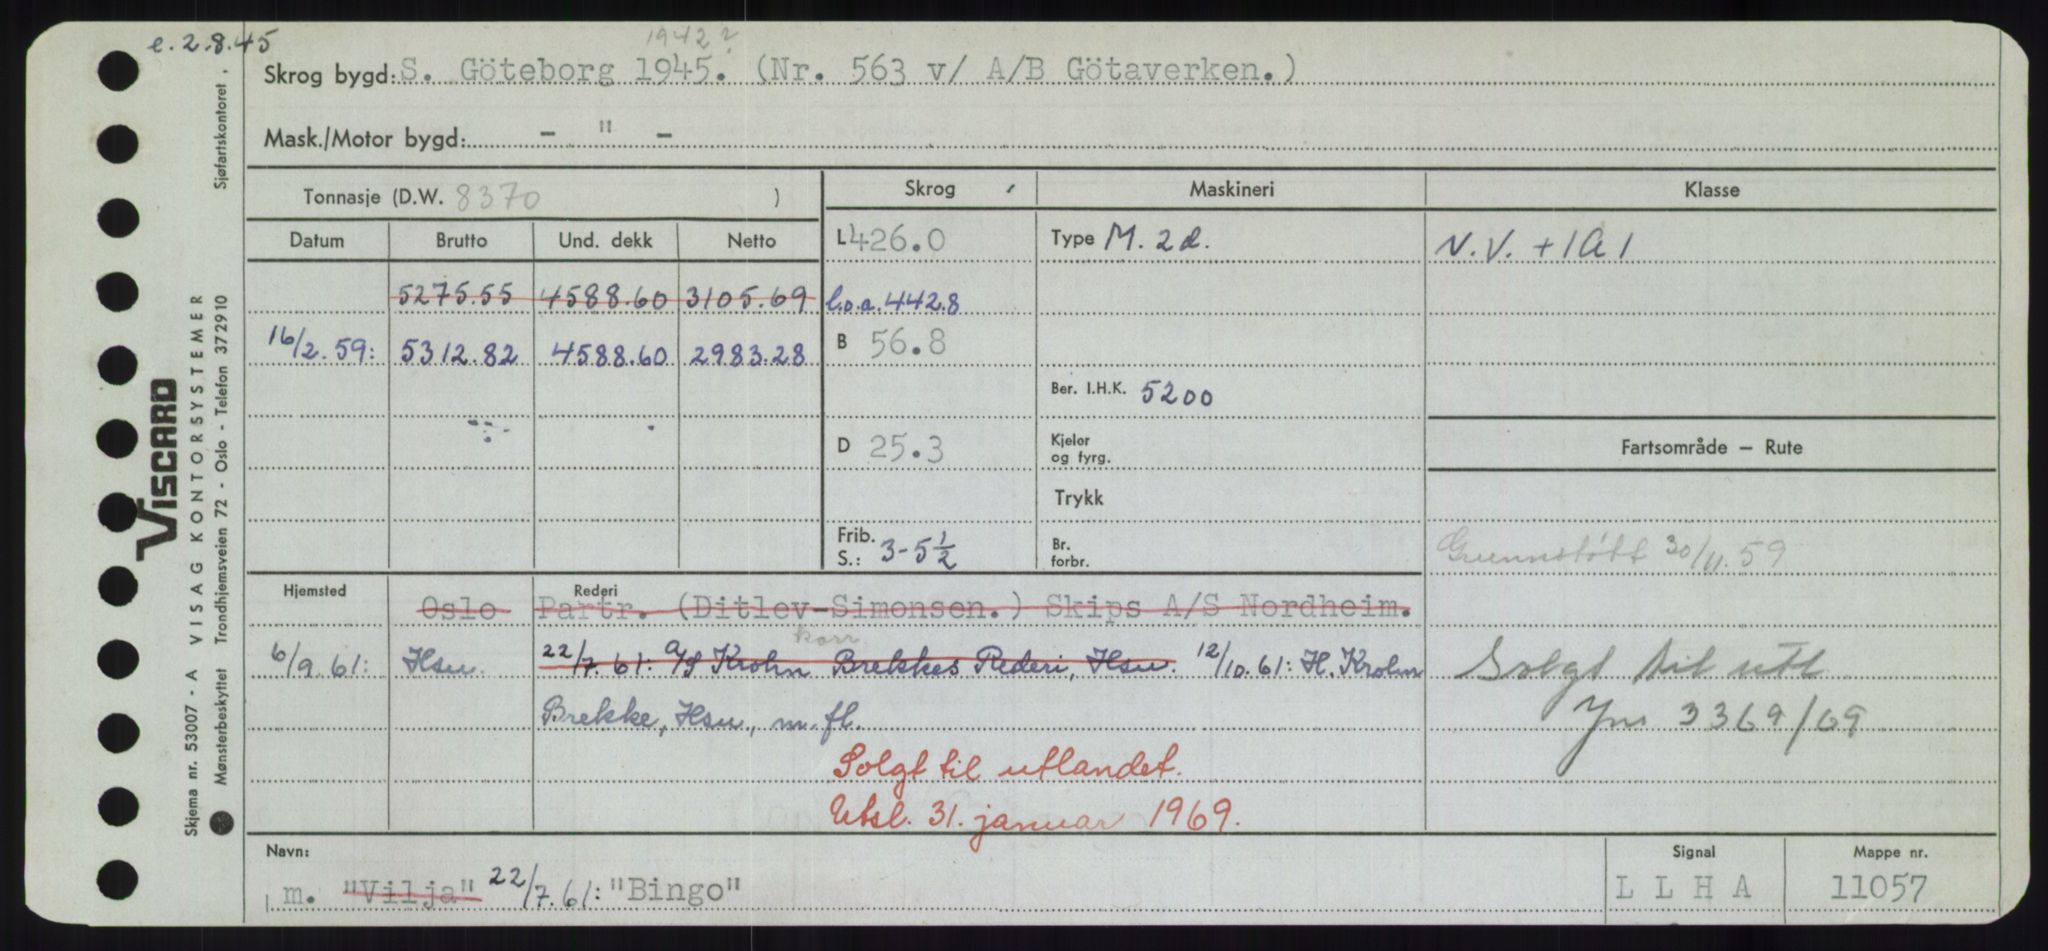 e. 2.8.45
1942?
Skrog bygd: S. Göteborg 1945. (Nr. 563 v/ A/B Götaverken.)
Mask./Motor bygd: - " -
Tonnasje (D.W. 8370 )
Skrog
Maskineri
Klasse
Datum Brutto Und. dekk Netto
L 426.0
Type M. 2 d.
N.V. + 1A1
5275.55 4588.60 3105.69
l.o.a. 442.8
16/2.59: 5312.82 4588.60 2983.28
B 56.8
Ber. I.H.K. 5200
D 25.3
Kjeler
og fyrg.
Fartsområde — Rute
Trykk
Frib.
S.: 3-5½
Br.
forbr.
Grunnstøtt 30/11.59
Hjemsted
Rederi
Oslo Partr. (Ditlev-Simonsen.) Skips A/S Nordheim.
korr
6/9.61: Hsu. 22/7.61: A/S Krohn Brekkes Rederi, Hsu. 12/10.61: H. Krohn
Brekke, Hsu, m.fl.
Solgt til utl
Jnr 3369/69
Solgt til utlandet.
Utsl. 31. januar 1969.
Navn:
m. "Vilja" 22/7.61: "Bingo"
Signal
L L H A
Mappe nr.
11057
VISCARD
Skjema nr. 53007 - A VISAG KONTORSYSTEMER
Mønsterbeskyttet Trondhjemsveien 72 - Oslo - Telefon 372910
Sjøfartskontoret.